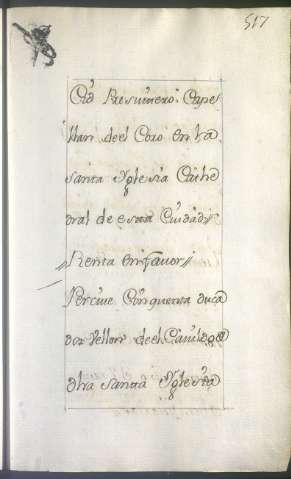 517
Cio Presvitero: Cape
llan deel Coro en la
santa Yglesia Cathe
dral de esta Ciudad //
// Renta en favor //
Percive Cinquenta duca
dos vellon deel Cavildo
dha santa Yglesia